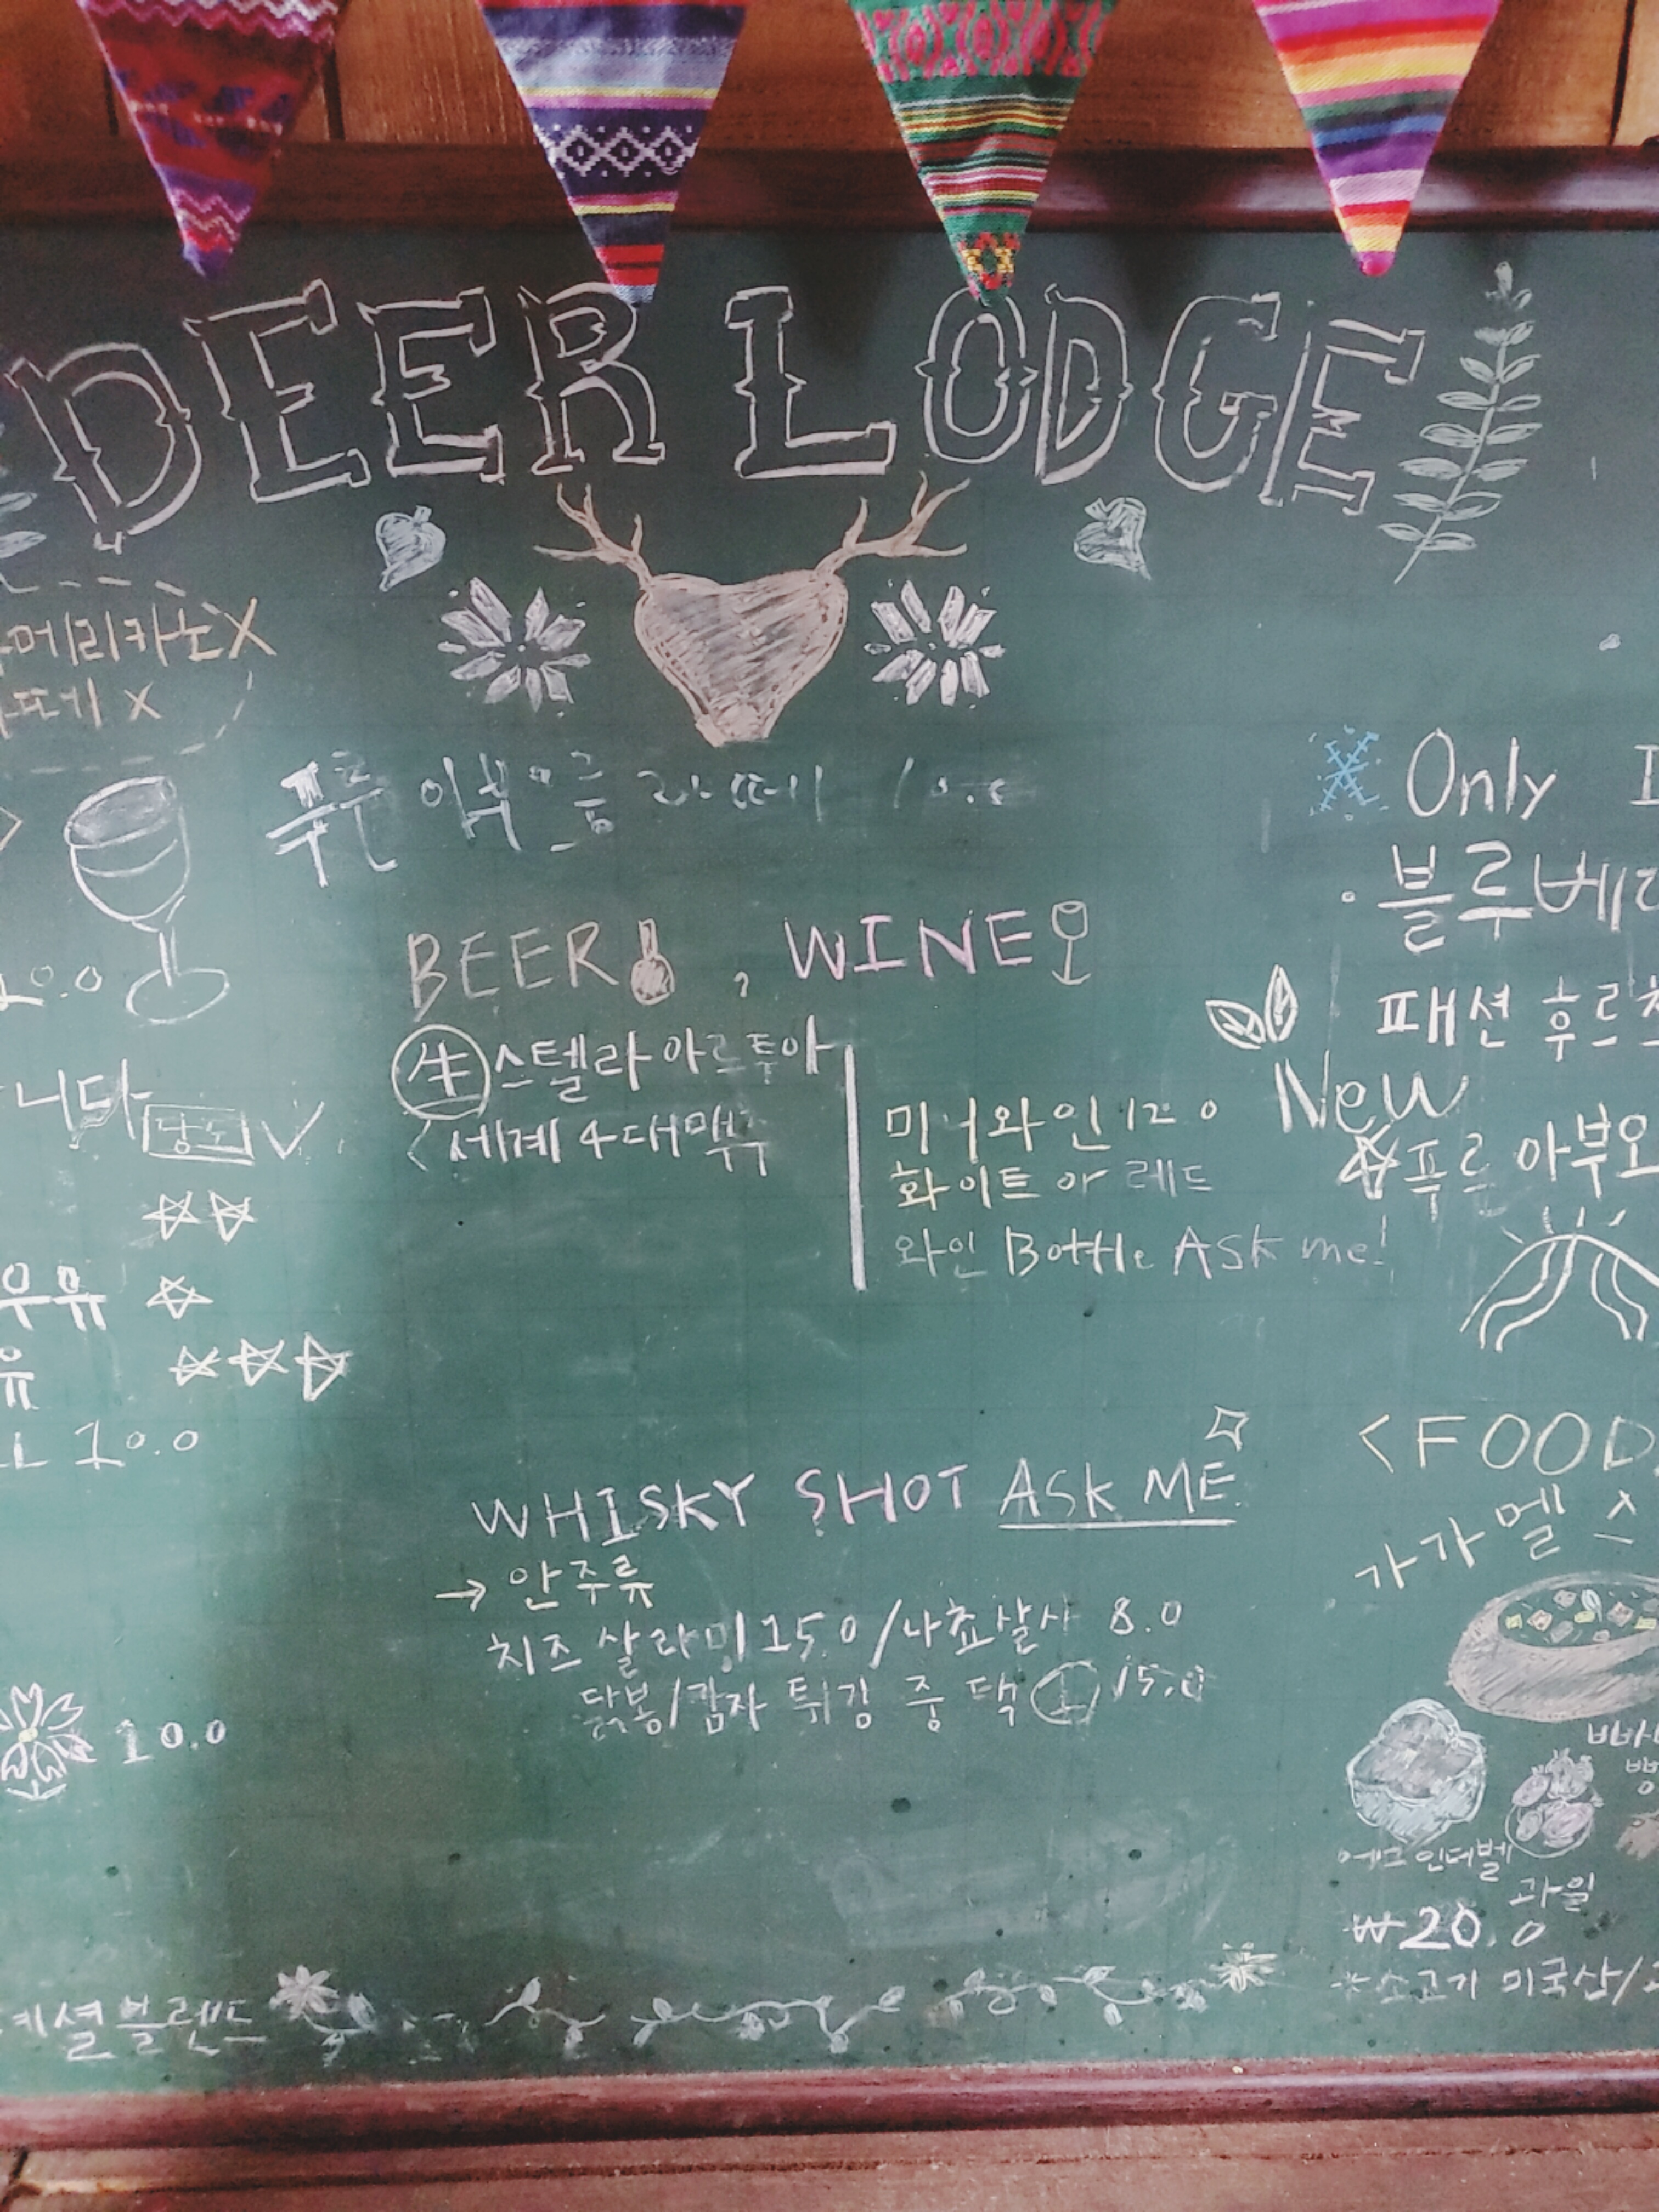 DEER LODGE
메리카노X
X
Only
블루베리
BEER , WINE
20.0
生 스텔라 아르투아
패션 후르츠
니다
New
세계 4대 맥주
미니와인 12.0
푸르 아부오
화이트 or 레드
와인 Bottle Ask me!
우유
유
10.0
<FOOD
WHISKY SHOT ASK ME
가가멜 스
→ 안주류
치즈 살라미 15.0 / 나쵸살사 8.0
닭봉/감자 튀김 중 택 1 15.0
10.0
에그인더벨
과일
₩20.0
소고기 미국산/
셜블렌드